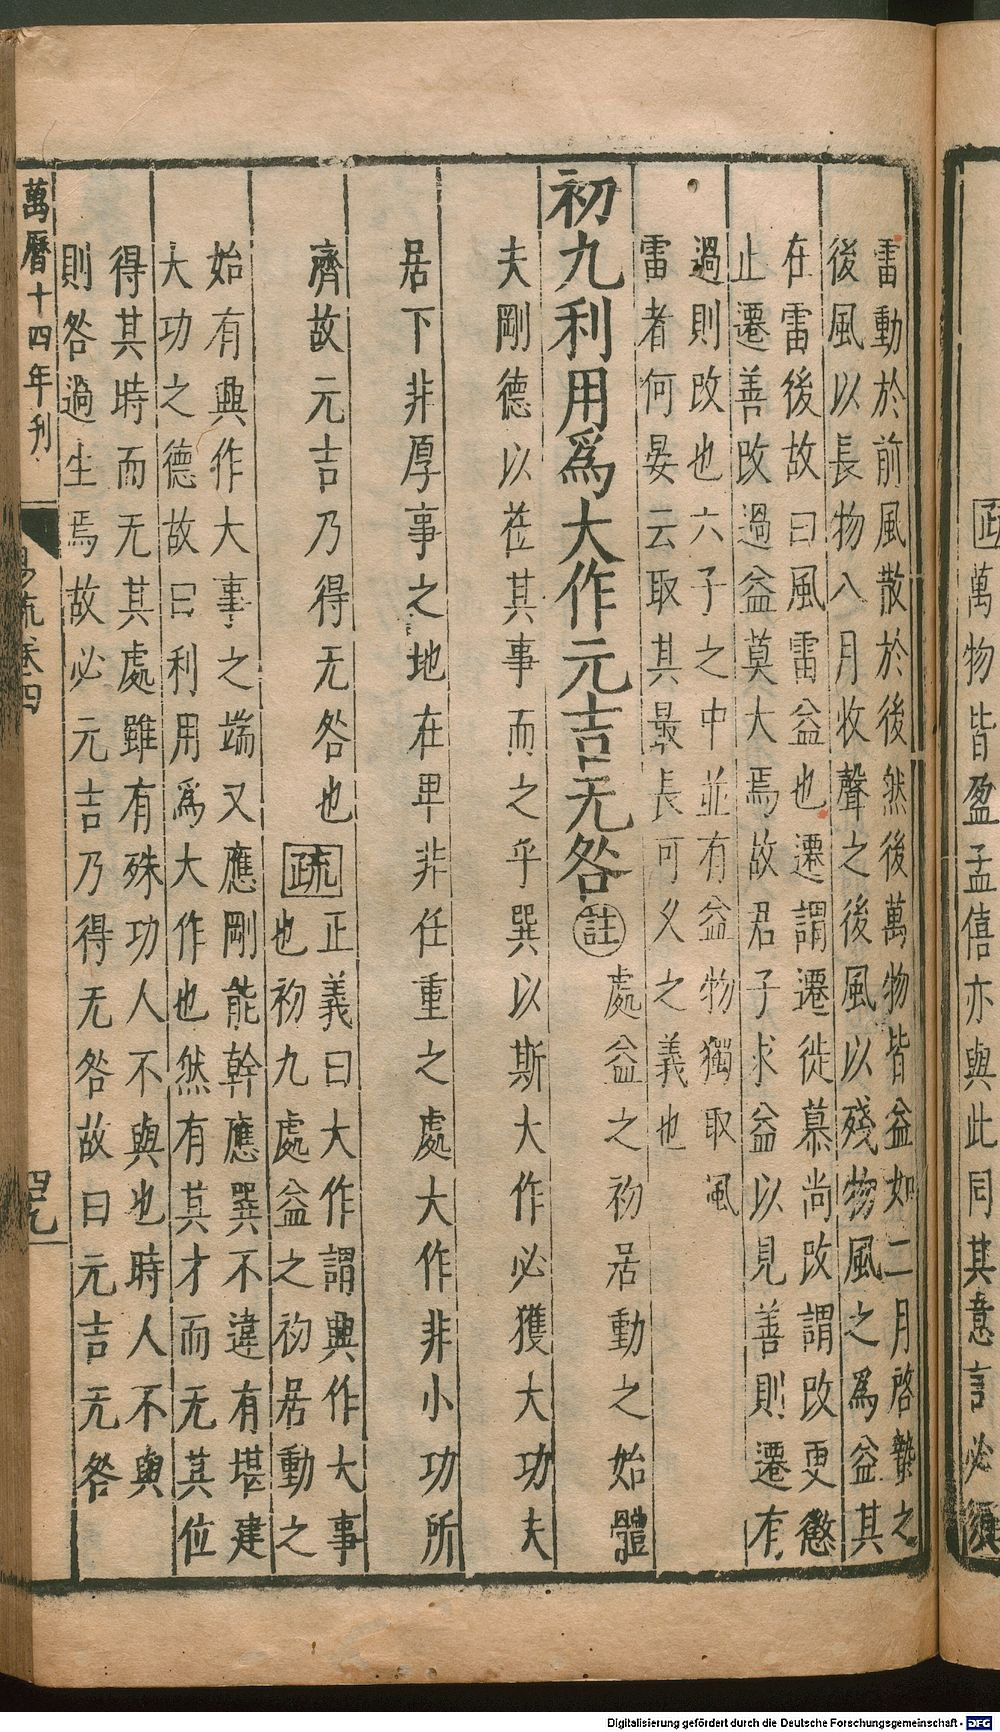 疏
萬物皆盈孟僖亦與此同其意言必須
雷動於前風散於後然後萬物皆益如二月啓蟄之
後風以長物八月收聲之後風以殘物風之爲益其
在雷後故曰風雷益也遷謂遷徙慕尚改謂改更懲
止遷善改過益莫大焉故君子求益以見善則遷有
過則改也六子之中並有益物獨取風
雷者何晏云取其最長可久之義也
初九利用爲大作元吉无咎註處益之初居動之始體
夫剛德以莅其事而之乎巽以斯大作必獲大功夫
居下非厚事之地在卑非任重之處大作非小功所
濟故元吉乃得无咎也疏正義曰大作謂興作大事
也初九處益之初居動之
始有興作大事之端又應剛能幹應巽不違有堪建
大功之德故曰利用爲大作也然有其才而无其位
得其時而无其處雖有殊功人不與也時人不與
則咎過生焉故必元吉乃得无咎故曰元吉无咎
萬曆十四年刋
易疏卷四
四九
Digitalisierung gefördert durch die Deutsche Forschungsgemeinschaft - DFG